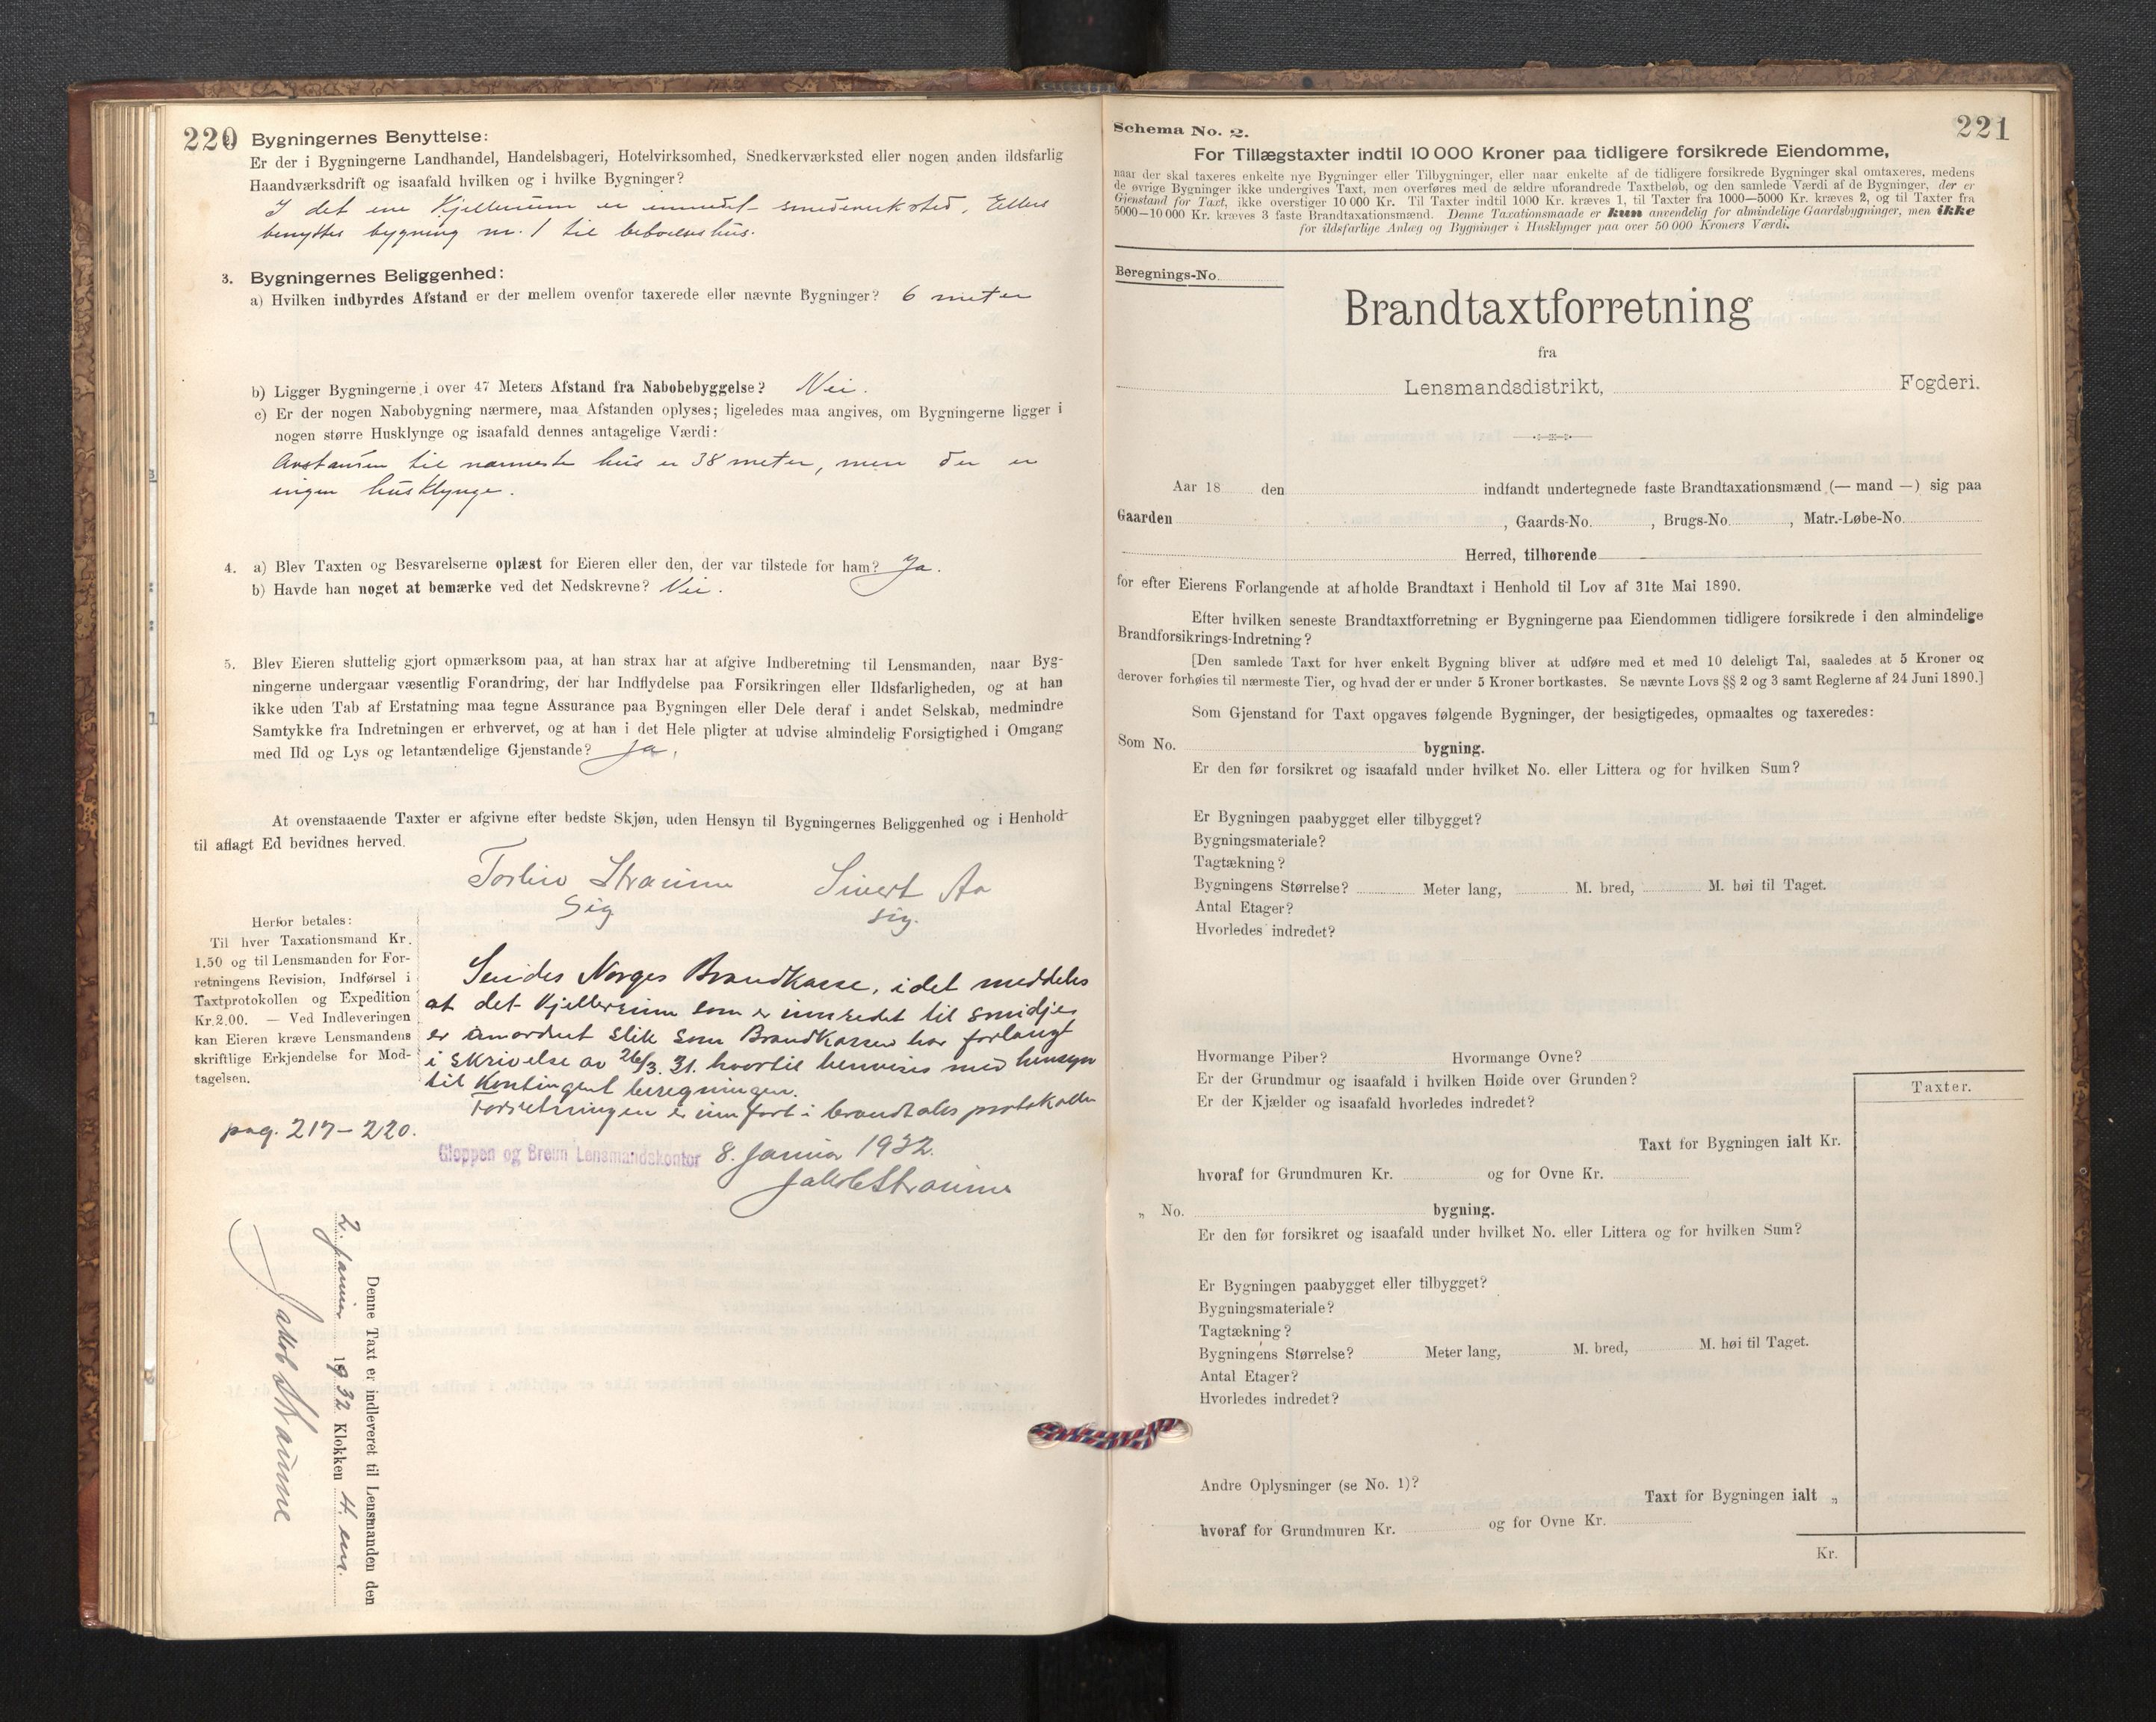 220
Bygningernes Benyttelse:
Er der i Bygningerne Landhandel, Handelsbageri, Hotelvirksomhed, Snedkerværksted eller nogen anden ildsfarlig
Haandværksdrift og isaafald hvilken og i hvilke Bygninger?
I det ene kjellerrum er innredet smedeverksted. Ellers
benyttes bygning nr. 1 til beboelseshus.
3. Bygningernes Beliggenhed:
a) Hvilken indbyrdes Afstand er der mellem ovenfor taxerede eller nævnte Bygninger? 6 meter
b) Ligger Bygningerne i over 47 Meters Afstand fra Nabobebyggelse? Nei.
c) Er der nogen Nabobygning nærmere, maa Afstanden oplyses; ligeledes maa angives, om Bygningerne ligger i
nogen større Husklynge og isaafald dennes antagelige Værdi:
Avstanden til nærmeste hus er 38 meter, men der er
ingen husklynge.
4. a) Blev Taxten og Besvarelserne oplæst for Eieren eller den, der var tilstede for ham? Ja.
b) Havde han noget at bemærke ved det Nedskrevne? Nei.
5. Blev Eieren sluttelig gjort opmærksom paa, at han strax har at afgive Indberetning til Lensmanden, naar Byg-
ningerne undergaar væsentlig Forandring, der har Indflydelse paa Forsikringen eller Ildsfarligheden, og at han
ikke uden Tab af Erstatning maa tegne Assurance paa Bygningen eller Dele deraf i andet Selskab, medmindre
Samtykke fra Indretningen er erhvervet, og at han i det Hele pligter at udvise almindelig Forsigtighed i Omgang
med Ild og Lys og letantændelige Gjenstande? Ja,
At ovenstaaende Taxter er afgivne efter bedste Skjøn, uden Hensyn til Bygningernes Beliggenhed og i Henhold
til aflagt Ed bevidnes herved.
Straume Sivert Aa
Sig sig.
Herfor betales:
Til hver Taxationsmand Kr.
1.50 og til Lensmanden for For-
retningens Revision, Indførsel i
Taxtprotokollen og Expedition
Kr. 2.00. — Ved Indleveringen
kan Eieren kræve Lensmandens
skriftlige Erkjendelse for Mod-
tagelsen.
Sendes Norges Brandkasse, idet meddeles
at det kjellerrum som er innredet til smidje,
er anordnet slik som Brandkassen har forlangt
i skrivelse av 26/3. 31. hvortil henvises med hensyn
til Kontingent beregningen.
Forretningen er innført i brandtakstprotokollen
pag. 217-220.
Gloppen og Breim Lensmandskontor 8. januar 1932.
Jakob Straume
Denne Taxt er indleveret til Lensmanden den
2. januar 1932 Klokken 4. em.
Jakob Straume
221
Schema No. 2.
For Tillægstaxter indtil 10 000 Kroner paa tidligere forsikrede Eiendomme,
naar der skal taxeres enkelte nye Bygninger eller Tilbygninger, eller naar enkelte af de tidligere forsikrede Bygninger skal omtaxeres, medens
de øvrige Bygninger ikke undergives Taxt, men overføres med de ældre uforandrede Taxtbeløb, og den samlede Værdi af de Bygninger, der er
Gjenstand for Taxt, ikke overstiger 10 000 Kr. Til Taxter indtil 1000 Kr. kræves 1, til Taxter fra 1000—5000 Kr. kræves 2, og til Taxter fra
5000—10 000 Kr. kræves 3 faste Brandtaxationsmænd. Denne Taxationsmaade er kun anvendelig for almindelige Gaardsbygninger, men ikke
for ildsfarlige Anlæg og Bygninger i Husklynger paa over 50 000 Kroners Værdi.
Beregnings-No.
Brandtaxtforretning
fra
Lensmandsdistrikt, Fogderi.
Aar 18 den indfandt undertegnede faste Brandtaxationsmænd (— mand —) sig paa
Gaarden , Gaards-No. , Brugs-No. , Matr.-Løbe-No.
Herred, tilhørende
for efter Eierens Forlangende at afholde Brandtaxt i Henhold til Lov af 31te Mai 1890.
Efter hvilken seneste Brandtaxtforretning er Bygningerne paa Eiendommen tidligere forsikrede i den almindelige
Brandforsikrings-Indretning?
[Den samlede Taxt for hver enkelt Bygning bliver at udføre med et med 10 deleligt Tal, saaledes at 5 Kroner og
derover forhøies til nærmeste Tier, og hvad der er under 5 Kroner bortkastes. Se nævnte Lovs §§ 2 og 3 samt Reglerne af 24 Juni 1890.]
Som Gjenstand for Taxt opgaves følgende Bygninger, der besigtigedes, opmaaltes og taxeredes:
Som No. bygning.
Er den før forsikret og isaafald under hvilket No. eller Littera og for hvilken Sum?
Er Bygningen paabygget eller tilbygget?
Bygningsmateriale?
Tagtækning?
Bygningens Størrelse? Meter lang, M. bred, M. høi til Taget.
Antal Etager?
Hvorledes indredet?
Hvormange Piber? Hvormange Ovne?
Er der Grundmur og isaafald i hvilken Høide over Grunden?
Er der Kjælder og isaafald hvorledes indredet?
Taxter.
Taxt for Bygningen ialt Kr.
hvoraf for Grundmuren Kr. og for Ovne Kr.
„ No. bygning.
Er den før forsikret og isaafald under hvilket No. eller Littera og for hvilken Sum?
Er Bygningen paabygget eller tilbygget?
Bygningsmateriale?
Tagtækning?
Bygningens Størrelse? Meter lang, M. bred, M. høi til Taget.
Antal Etager?
Hvorledes indredet?
Andre Oplysninger (se No. 1)?
Taxt for Bygningen ialt „
hvoraf for Grundmuren Kr. og for Ovne Kr.
Kr.